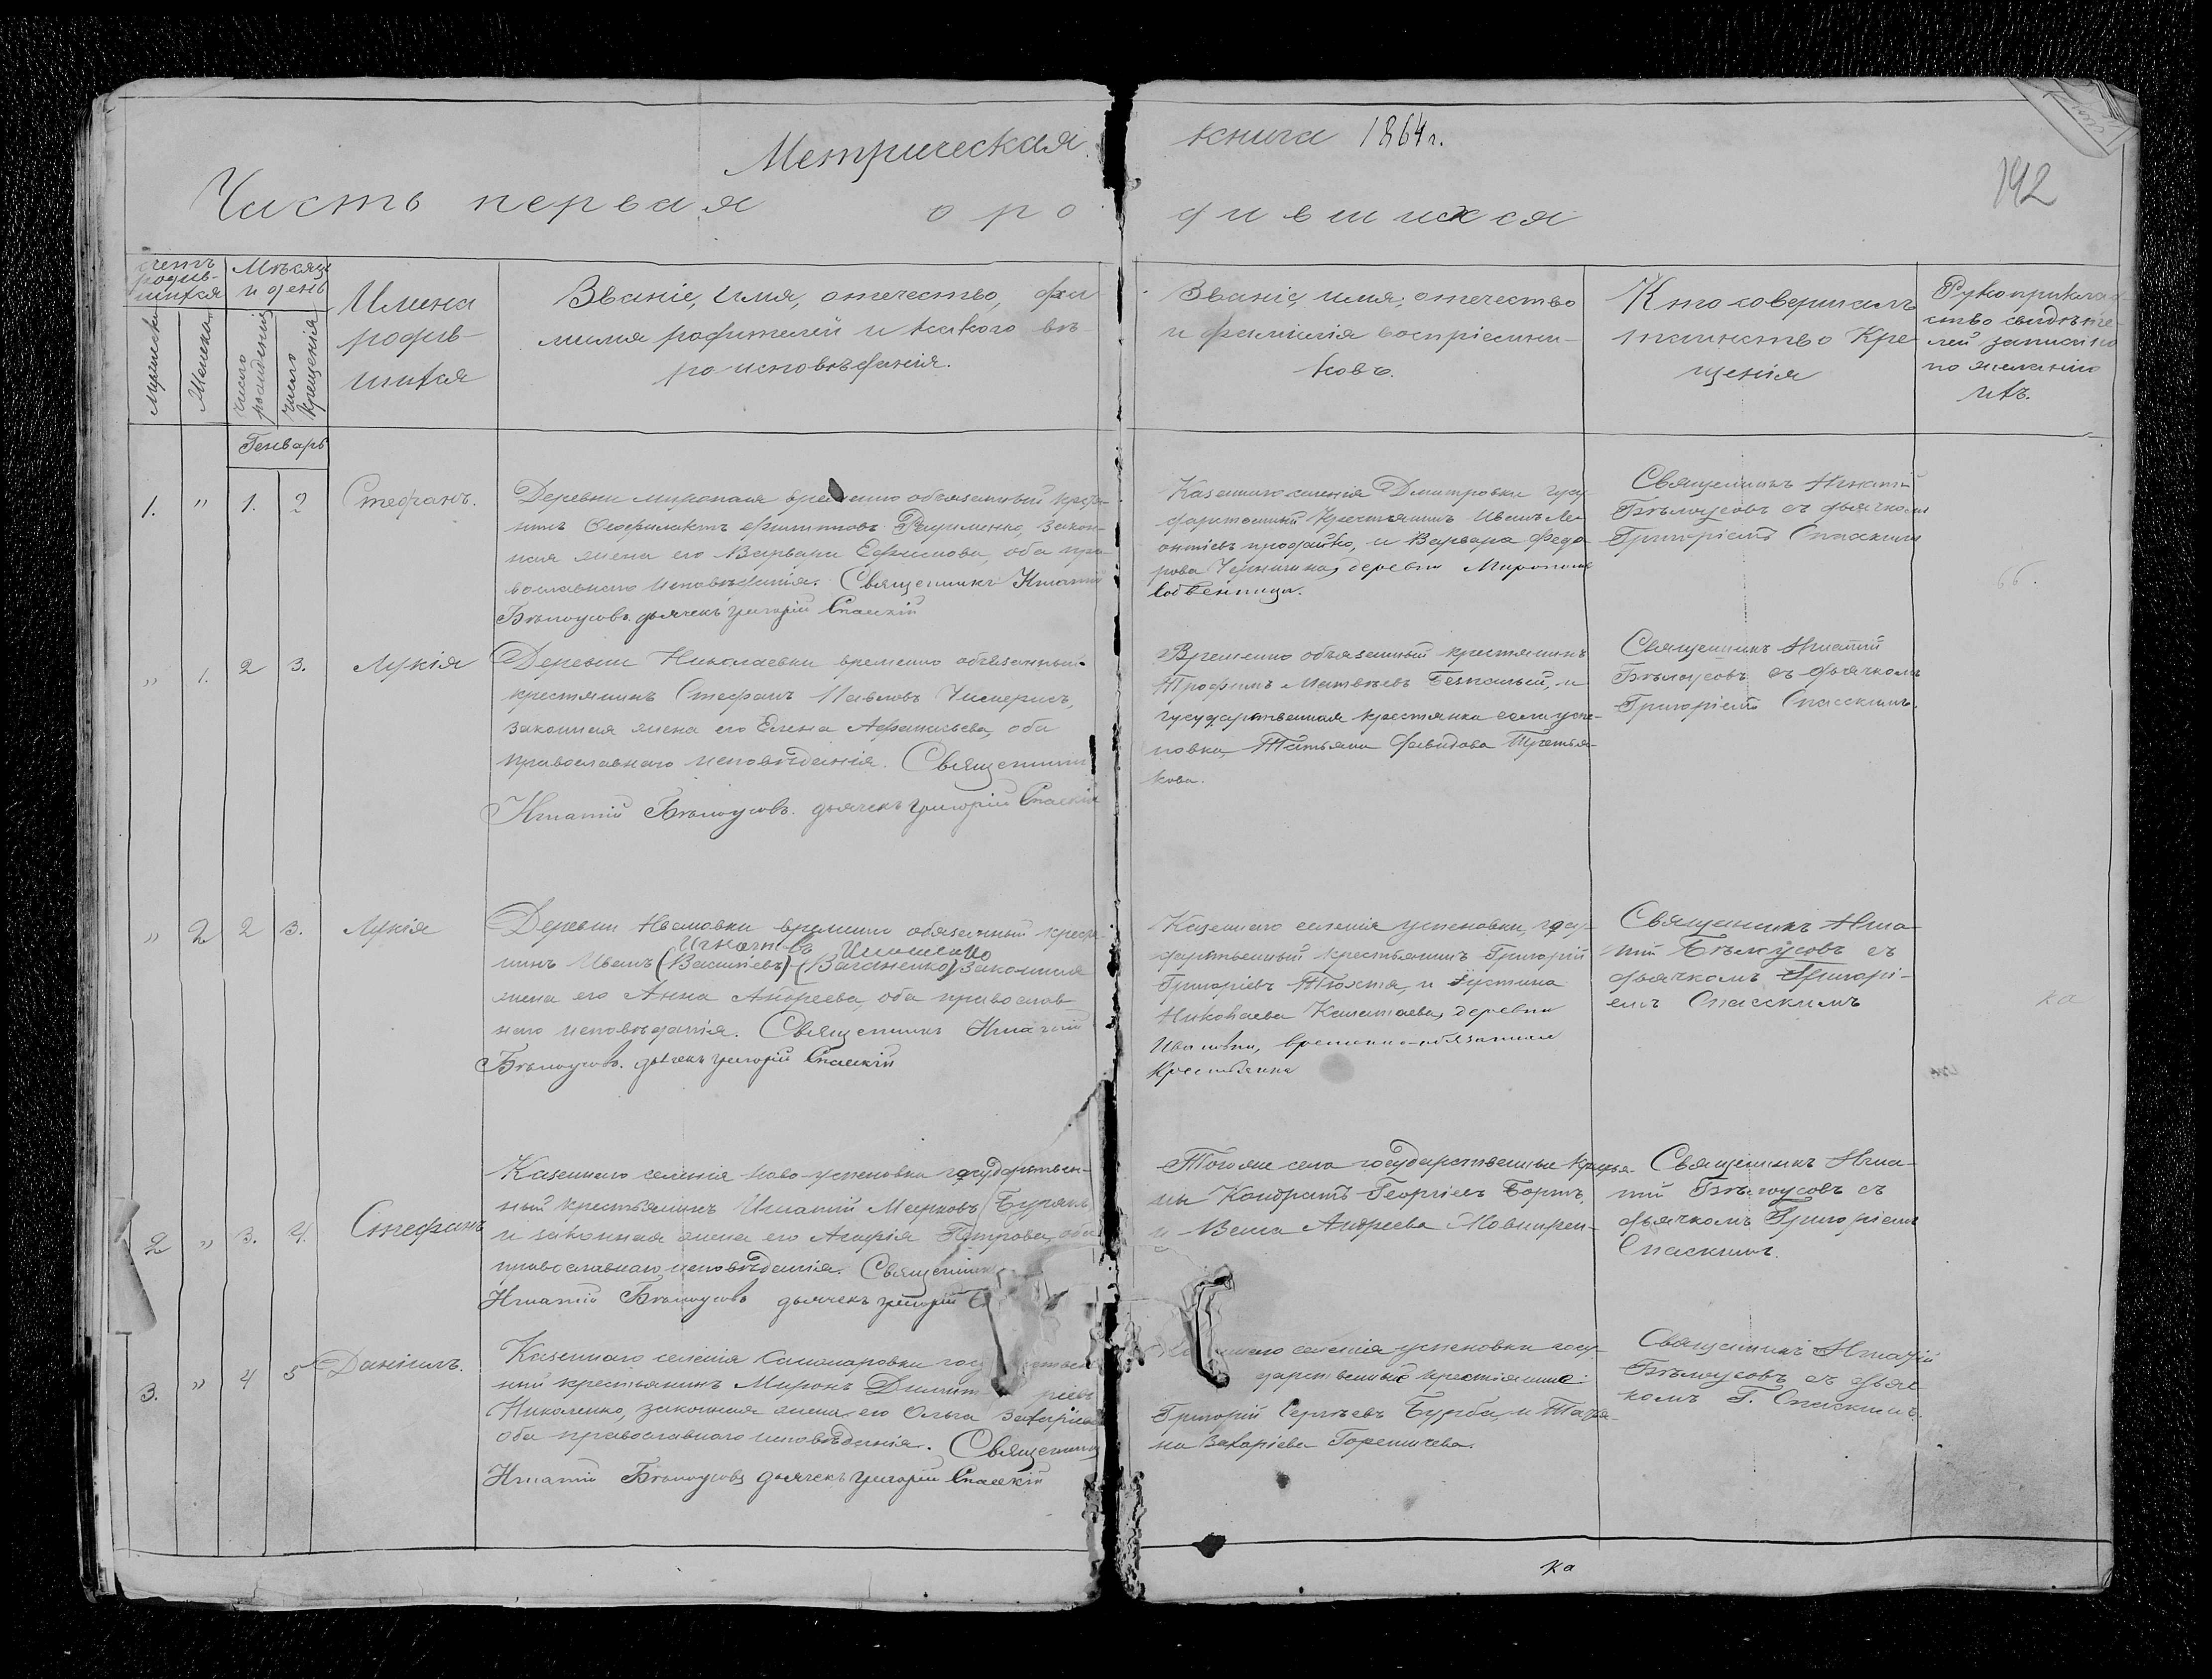 Метрическая книга 1864 г.
192
Часть первая о родившихся
Счетъ родив-
шихся
Мѣсяцъ
и день
Мужеска
Женска
Число
рожденія
Число
крещенія
Имена
родив-
шихся
Званіе, имя, отечество, фа
милія родителей и какого вѣ-
роисповѣданія.
Званіе, имя, отечество
и фамилія воспріемни-
ковъ.
Кто совершалъ
таинство Кре
щенія
Рукоприклад
ство свидѣте-
лей записи
по желанію
ихъ.
Генварь
1. " 1. 2 Стефанъ.
Деревни Мирополя временно обязанный крестя-
нинъ Феофилактъ Филиповъ закон-
ная жена его Варвара Ефимова, оба пра-
вославнаго исповѣданія. Священникъ Игнатій
Бѣлоусовъ. дьячекъ Григорій Спаскій
Казеннаго селенія Дмитровки госу-
дарственный крестьянинъ Иванъ Ле-
онтіевъ продайко, и Варвара Федо-
рова деревни Мирополя
Священникъ Игнатій
Бѣлоусовъ съ дьячкомъ
Григоріемъ Спаскимъ
" 1. 2 3. Лукія
Деревни Николаевки временно обязанный
крестянинъ Стефанъ Павловъ
законная жена его Елена Афанасьева, оба
православнаго исповѣданія. Священникъ
Игнатій Бѣлоусовъ. дьячекъ Григорій Спаскій
Временно обязанный крестянинъ
Трофимъ Матвѣевъ Безпалый, и
государственная крестянка села успе-
новки, Татьяна Давидова Третья-
кова.
Священникъ Игнатій
Бѣлоусовъ съ дьячкомъ
Григоріемъ Спасскимъ.
" 2 2 3. Лукія
Деревни Ивановки временно обязанный кресть
Игнатовъ
нинъ Иванъ (Василіевъ) (Ваганенко) законная
жена его Анна Андреева, оба православ
наго исповѣданія. Священникъ Игнатій
Бѣлоусовъ. дьячекъ Григорій Спаскій
Казеннаго селенія успеновки, госу-
дарственный крестьянинъ Григорій
Григоріевъ и Іустина
Николаева деревни
Ивановки, временно-обязанная
крестьянка
Священникъ Игна
тій Бѣлоусовъ съ
дьячкомъ Григорі-
емъ Спасскимъ
ка
2 " 3. 4. Стефанъ
Казеннаго селенія Ново-успеновки государствен-
ный крестьянинъ Игнатій Марковъ Бурякъ
и законная жена его Агафія Петрова, оба
православнаго исповѣданія. Священникъ
Игнатій Бѣлоусовъ дьячекъ Григорій
Того же села государственные крестья-
ны Кондратъ Георгіевъ Бортъ
и Андреева
Священникъ Игна-
тій Бѣлоусовъ съ
дьячкомъ Григоріемъ
Спаскимъ.
3. " 4 5 Даніилъ.
Казеннаго селенія
ный крестьянинъ Миронъ Димит ріевъ
Николенко, законная жена его Ольга Захаріева
оба православнаго исповѣданія. Священникъ
Игнатій Бѣлоусовъ дьячекъ Григорій Спаскій
селенія успеновки госу-
дарственные крестіянине:
Григорій Сергѣевъ Бурба, и Татья-
на Захаріева
Священникъ Игнатій
Бѣлоусовъ съ дьяч
комъ Г. Спаскимъ.
ка